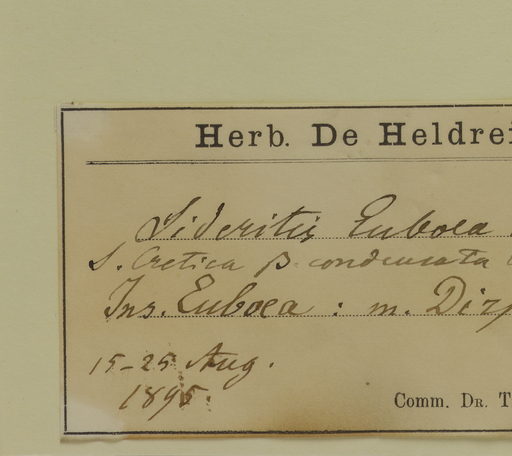 Herb. De Heldrei
Sideritis Euboea
S. Cretica β condensata
Ins. Euboea : m. Dirp
15-25 Aug.
1895.
Comm. Dr. T